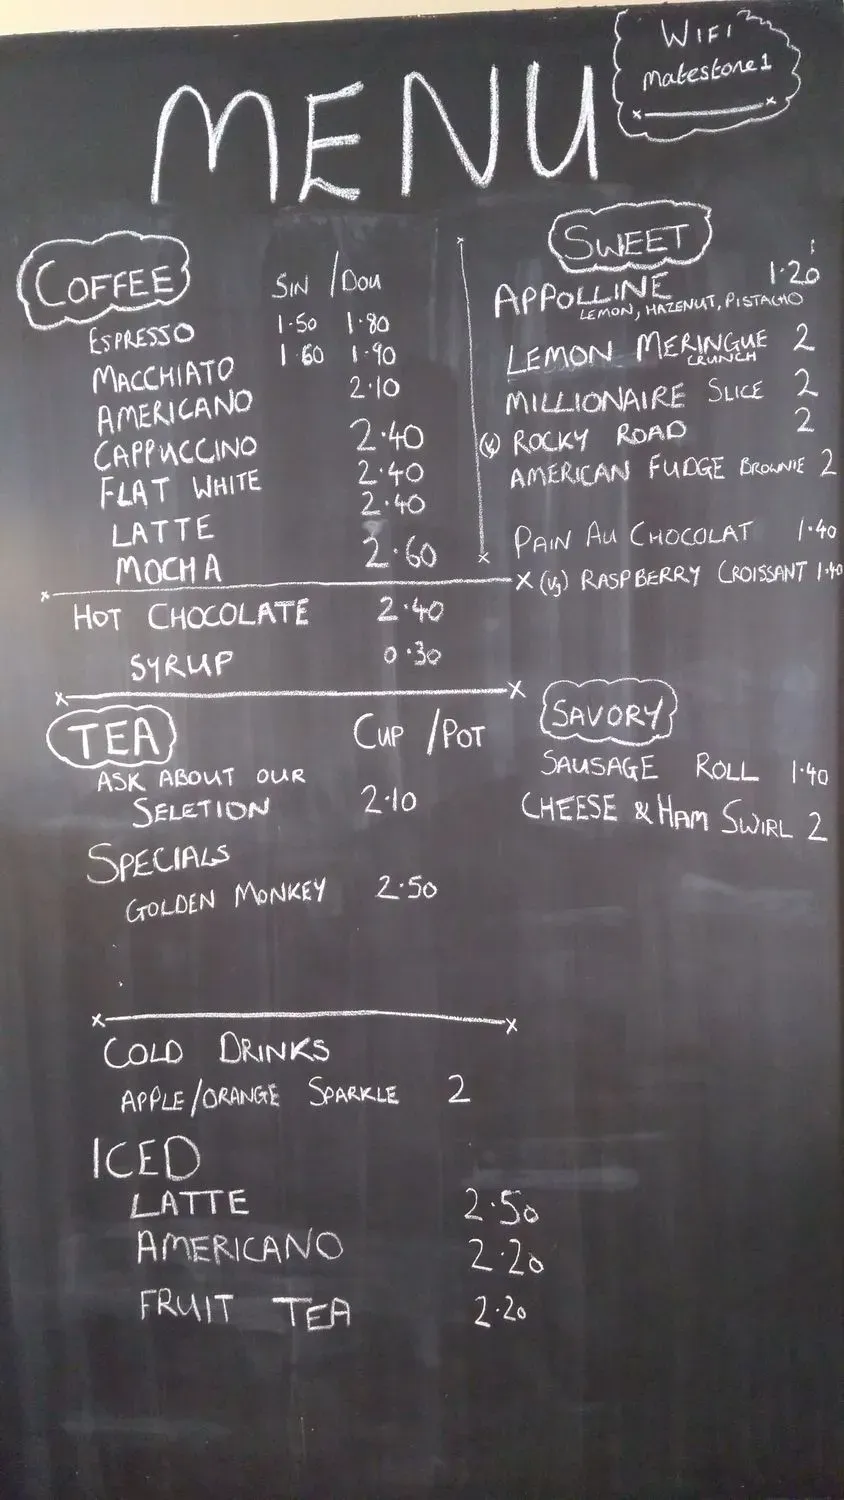 WIFI
matestone1
MENU
COFFEE
SIN / DOU
ESPRESSO 1.50 1.80
MACCHIATO 1.60 1.90
AMERICANO 2.10
CAPPUCCINO 2.40
FLAT WHITE 2.40
LATTE 2.40
MOCHA 2.60
HOT CHOCOLATE 2.40
SYRUP 0.30
TEA
CUP / POT
ASK ABOUT OUR
SELETION 2.10
SPECIALS
GOLDEN MONKEY 2.50
COLD DRINKS
APPLE/ORANGE SPARKLE 2
ICED
LATTE 2.50
AMERICANO 2.20
FRUIT TEA 2.20
SWEET
APPOLLINE 1.20
LEMON, HAZENUT, PISTACHO
LEMON MERINGUE 2
CRUNCH
MILLIONAIRE SLICE 2
ROCKY ROAD 2
AMERICAN FUDGE BROWNIE 2
PAIN AU CHOCOLAT 1.40
(Vg) RASPBERRY CROISSANT 1.40
SAVORY
SAUSAGE ROLL 1.40
CHEESE & HAM SWIRL 2